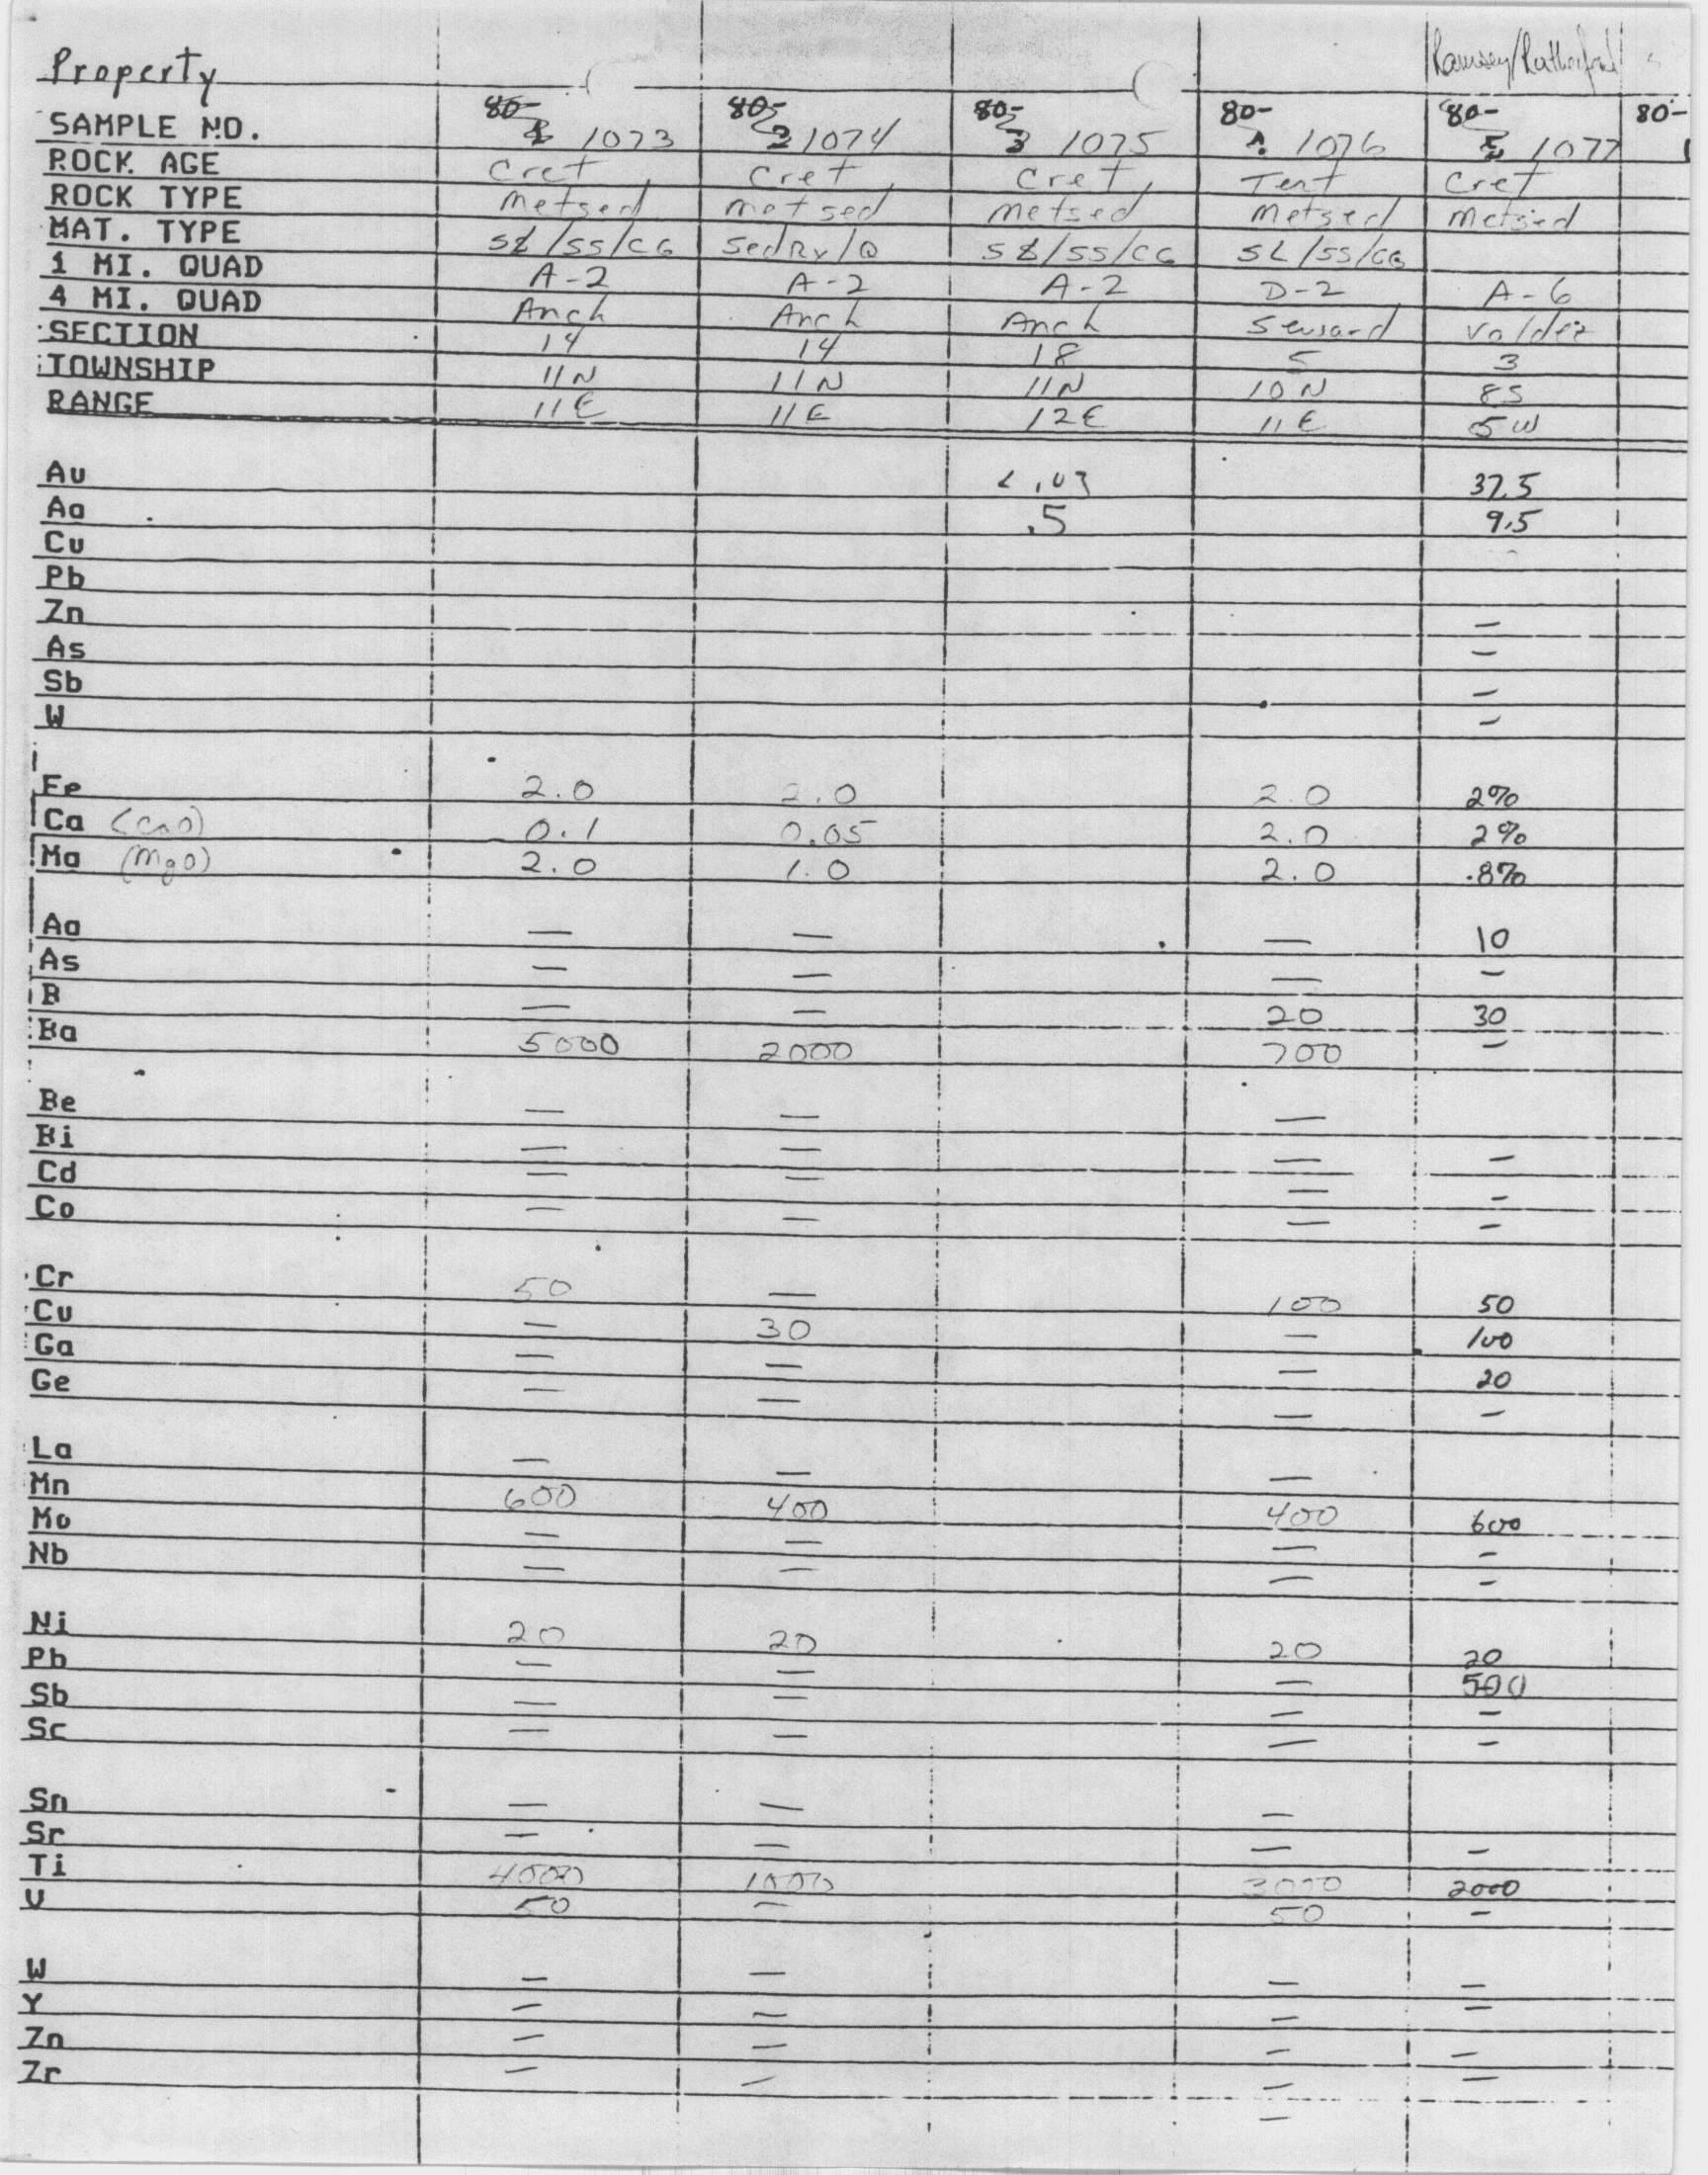 Ramsey/Rutherford
Property
80- 80- 80- 80- 80- 80-
SAMPLE NO. 1073 1074 1075 1076 1077
ROCK AGE Cret Cret Cret Tert Cret
ROCK TYPE Metsed Metsed Metsed Metsed Metsed
MAT. TYPE SL/SS/CG Sed Rx/Q SL/SS/CG SL/SS/CG
1 MI. QUAD A-2 A-2 A-2 D-2 A-6
4 MI. QUAD Anch Anch Anch Seward Valdez
SECTION 14 14 18 5 3
TOWNSHIP 11N 11N 11N 10N 8S
RANGE 11E 11E 12E 11E 5W
Au < .03 37.5
Ag .5 9.5
Cu
Pb
Zn —
As —
Sb —
W —
Fe 2.0 2.0 2.0 2%
Ca (CaO) 0.1 0.05 2.0 2%
Mg (MgO) 2.0 1.0 2.0 .8%
Ag — — — 10
As — — — —
B — — 20 30
Ba 5000 2000 700 —
Be — — —
Bi — — — —
Cd — — — —
Co — — — —
Cr 50 — 100 50
Cu — 30 — 100
Ga — — — 20
Ge — — — —
La — — —
Mn 600 400 400 600
Mo — — — —
Nb — — — —
Ni 20 20 20 20
Pb — — — 500
Sb — — — —
Sc — — — —
Sn — — —
Sr — — — —
Ti 4000 1000 3000 2000
V 50 — 50 —
W — — — —
Y — — — —
Zn — — — —
Zr — — — —
—